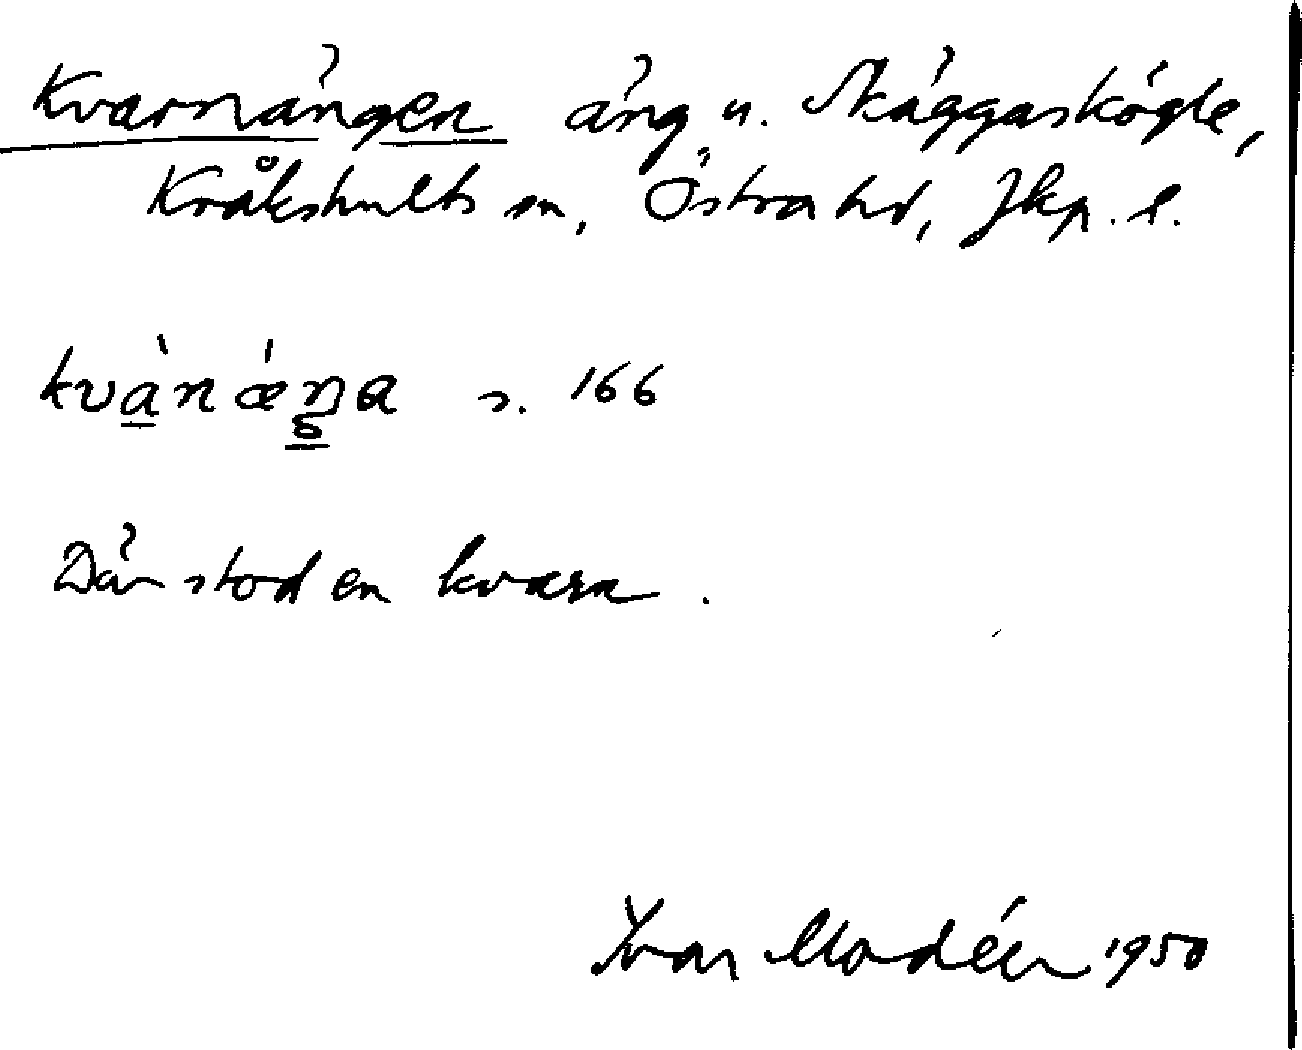 Kvarnängen äng u. Skäggaskögle,
Kråkshults sn, Östra hd, Jkp. l.
kvànǽŋa s. 166
Där stod en kvarn.
Ivar Modéer 1950